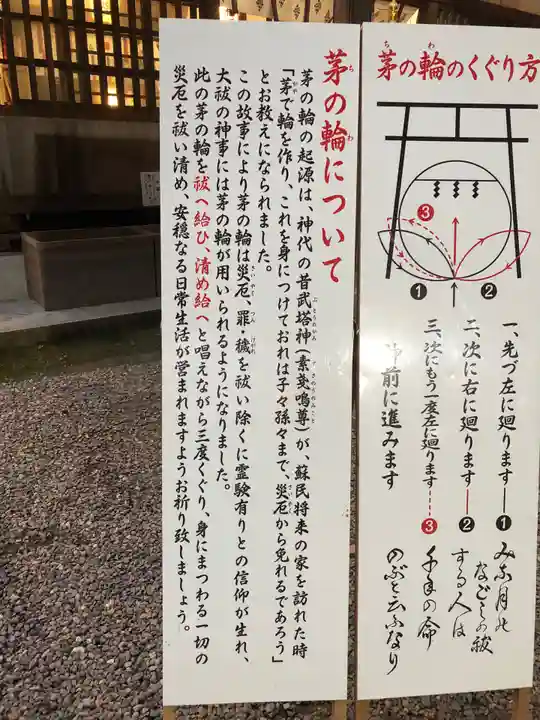 茅の輪のくぐり方
ち
わ
❸
❶
❷
一、先づ左に廻ります——❶
二、次に右に廻ります——❷
三、次にもう一度左に廻ります----❸
前に進みます
みな月の
なごしの祓
する人は
千年の命
のぶと云ふなり
茅の輪について
ち
わ
茅の輪の起源は、神代の昔武塔神(素戔嗚尊)が、蘇民将来の家を訪れた時
「茅で輪を作り、これを身につけておれは子々孫々まで、災厄から免れるであろう」
とお教えになられました。
この故事により茅の輪は災厄、罪・穢を祓い除くに霊験有りとの信仰が生れ、
大祓の神事には茅の輪が用いられるようになりました。
此の茅の輪を祓へ給ひ、清め給へと唱えながら三度くぐり、身にまつわる一切の
災厄を祓い清め、安穏なる日常生活が営まれますようお祈り致しましょう。